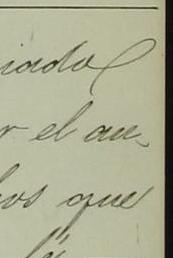 iado
r el au-
los que